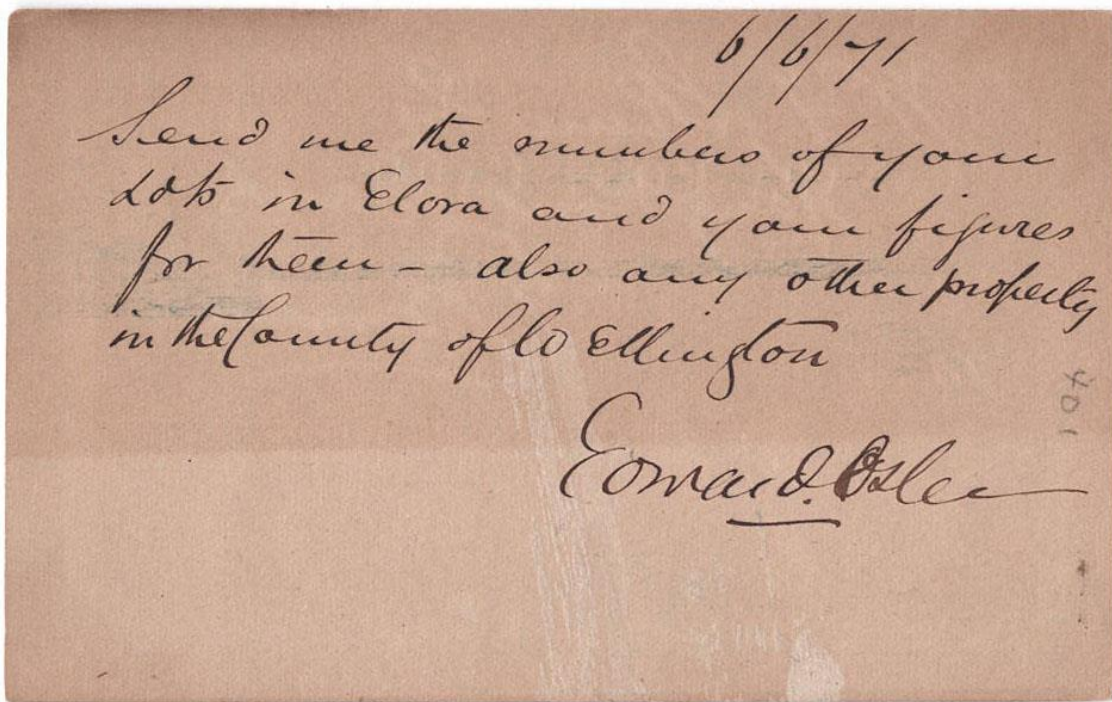 6/6/71
Send me the numbers of your
Lots in Elora and your figures
for them - also any other property
in the County of Wellington
Edward. Osler
401